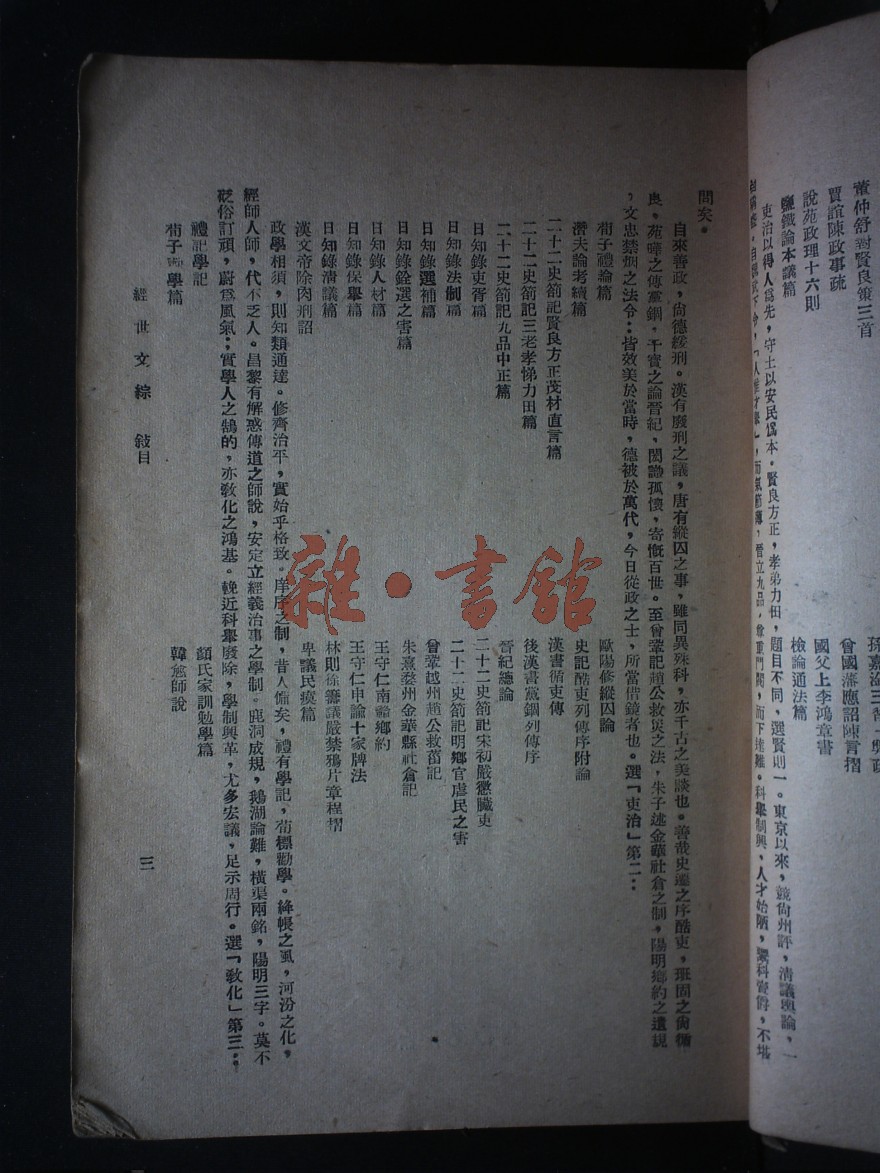 孫嘉淦三習一弊疏
曾國藩應詔陳言摺
國父上李鴻章書
檢論通法篇
董仲舒對賢良策三首
賈誼陳政事疏
說苑政理十六則
鹽鐵論本議篇
吏治以得人爲先,守土以安民爲本。賢良方正,孝弟力田,題目不同,選賢則一。東京以來,競尚州評,清議輿論,一
人才始陋,鬻科賣爵,不堪
問矣。
自來善政,尚德緩刑。漢有廢刑之議,唐有縱囚之事,雖同異殊科,亦千古之美談也。善哉史遷之序酷吏,班固之尚循
良。范曄之傳黨錮,干寶之論晉紀,閎識孤懷,寄慨百世。至曾鞏記趙公救災之法,朱子述金華社倉之制,陽明鄉約之遺規
,文忠禁烟之法令:皆效美於當時,德被於萬代,今日從政之士,所當借鏡者也。選「吏治」第二:
荀子禮論篇
歐陽修縱囚論
潛夫論考績篇
史記酷吏列傳序附論
二十二史箚記賢良方正茂材直言篇
漢書循吏傳
二十二史箚記三老孝悌力田篇
後漢書黨錮列傳序
二十二史箚記九品中正篇
晉紀總論
日知錄吏胥篇
二十二史箚記宋初嚴懲贓吏
日知錄法制篇
二十二史箚記明鄉官虐民之害
日知錄選補篇
曾鞏越州趙公救菑記
日知錄銓選之害篇
朱熹婺州金華縣社倉記
日知錄人材篇
王守仁南贛鄉約
日知錄保舉篇
王守仁申諭十家牌法
日知錄清議篇
林則徐籌議嚴禁鴉片章程摺
漢文帝除肉刑詔
卑議民瘼篇
政學相須,則知類通達。修齊治平,實始乎格致。庠序之制,昔人備矣,禮有學記,荀標勸學。絳帳之風,河汾之化,
經師人師,代不乏人。昌黎有解惑傳道之師說,安定立經義治事之學制。鹿洞成規,鵝湖論難,橫渠兩銘,陽明三字。莫不
砭俗訂頑,蔚爲風氣;實學人之鵠的,亦敎化之鴻基。輓近科舉廢除,學制興革,尤多宏議,足示周行。選「敎化」第三:
禮記學記
顏氏家訓勉學篇
荀子勸學篇
韓愈師說
經世文綜 敍目
三
雜·書館